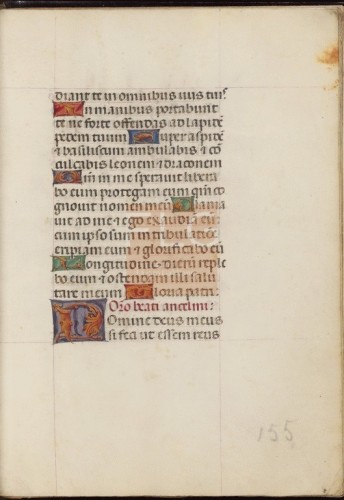 diant te in omnibus uiis tuis
In manibus portabunt
te ne forte offendas ad lapidē
pedem tuum Super aspidē
& basiliscum ambulabis & cō
culcabis leonem & draconem
Qm̄ in me sperauit libera
bo eum protegam eum qm̄ co
gnouit nomen meū Clama
uit ad me & ego exaudiā eū
cum ipso sum in tribulatiōe
eripiam eum & glorificabo eū
Longitudine dierū reple
bo eum & ostendam illi salu
tare meum Gloria patri
Oro beati anselmi
Domine deus meus
si feci ut essem reus
155